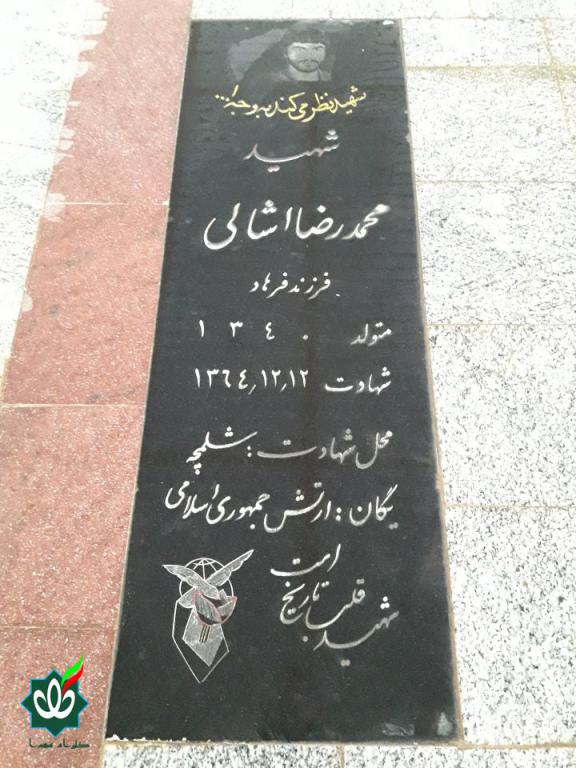 شهید نظر می‌کند به وجه ا...
شهید
محمدرضا اشالی
فرزند فرهاد
متولد ۱۳٤۰
شهادت ۱۳٦٤٫۱۲٫۱۲
محل شهادت : شلمچه
یگان : ارتش جمهوری اسلامی
شهید قلب تاریخ است